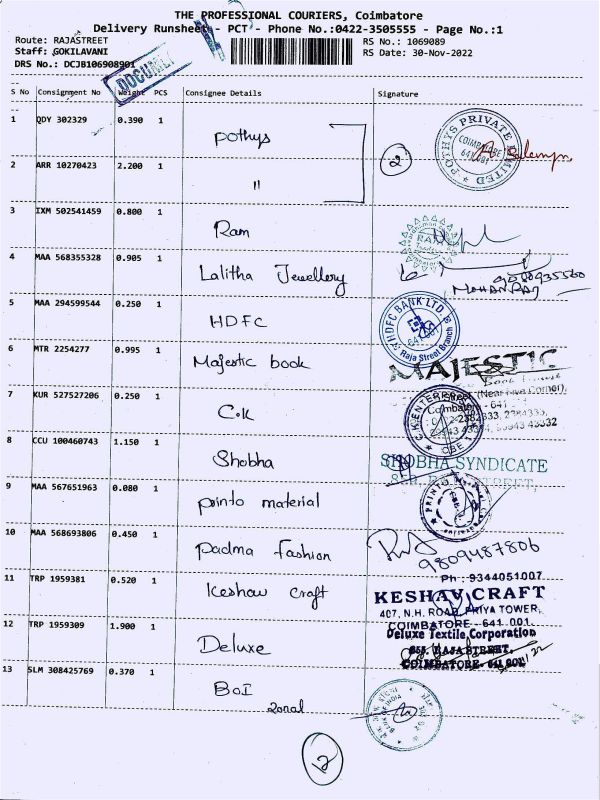 THE PROFESSIONAL COURIERS, Coimbatore
Delivery Runsheet - PCT - Phone No.:0422-3505555 - Page No.:1
Route: RAJASTREET
RS No.: 1069089
Staff: GOKILAVANI
RS Date: 30-Nov-2022
DRS No.: DCJB106908901
DOCUMENT
S No Consignment No Weight PCS Consignee Details Signature
1 QDY 302329 0.390 1 Pothys
2
POTHYS PRIVATE LIMITED
COIMBATORE
641 001
2 ARR 10270423 2.200 1 "
3 IXM 502541459 0.800 1 Ram
RAM
4 MAA 568355328 0.905 1 Lalitha Jewellery
MOHANRAJ
5 MAA 294599544 0.250 1 HDFC
HDFC BANK LTD.
641 001
Raja Street Branch
6 MTR 2254277 0.995 1 Majestic book
MAJESTIC
Book House
(Near Five Corner),
Coimbatore - 641
7 KUR 527527206 0.250 1 C.K
C.K ENTERPRISES
CBE 1
8 CCU 100460743 1.150 1 Shobha
SHOBHA SYNDICATE
9 MAA 567651963 0.080 1 printo material
PRINTO
10 MAA 568693806 0.450 1 Padma Fashion
9809487806
11 TRP 1959381 0.520 1 Keshav craft
Ph : 9344051007
KESHAV CRAFT
407, N.H. ROAD, PRIYA TOWER,
COIMBATORE - 641 001.
12 TRP 1959309 1.900 1 Deluxe
Deluxe Textile Corporation
RAJA STREET,
COIMBATORE - 641 001
13 SLM 308425769 0.370 1 BOI
Zonal
BANK OF INDIA
12